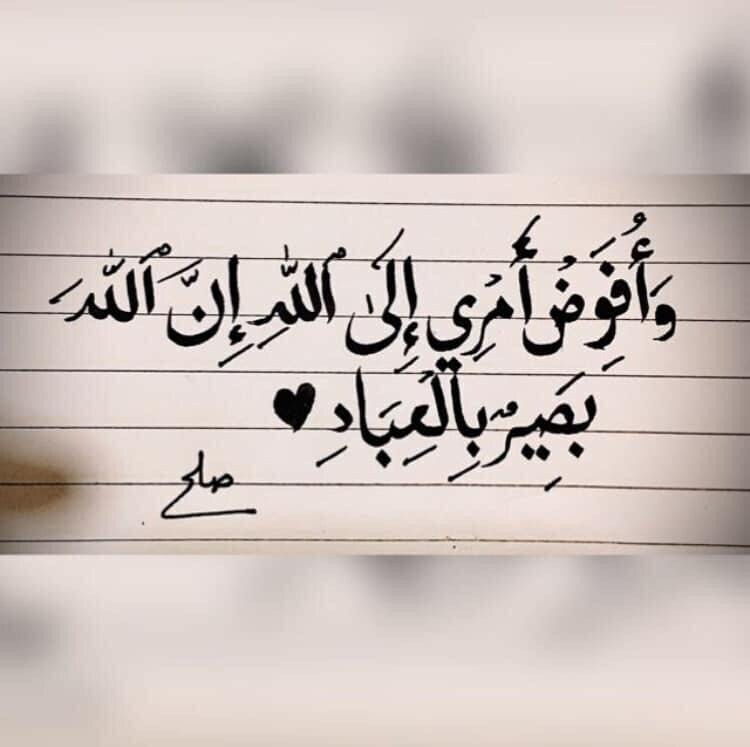 وَأُفَوِّضُ أَمْرِي إِلَى ٱللَّهِ إِنَّ ٱللَّهَ
بَصِيرٌ بِالْعِبَادِ ♥
صلح